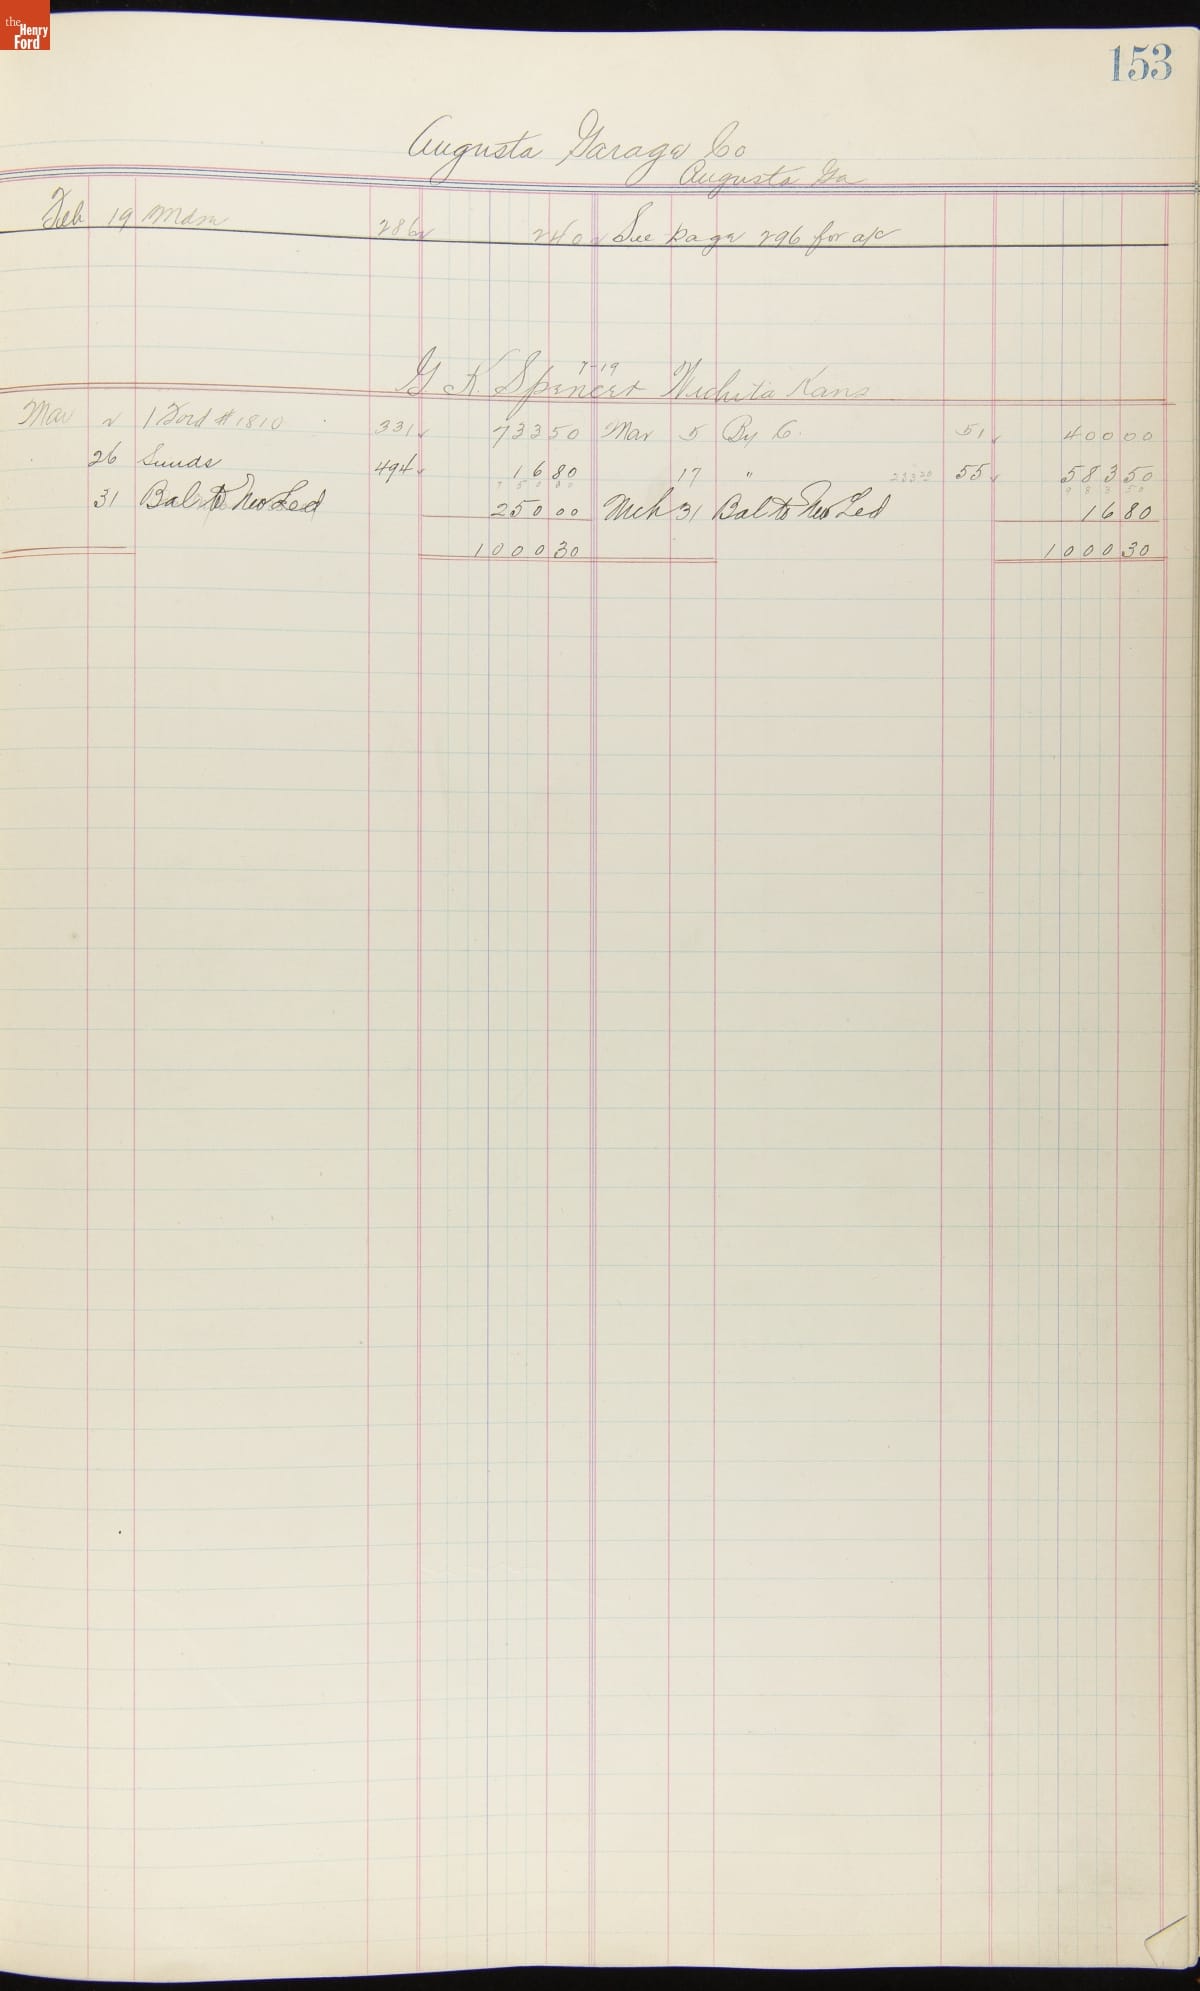 the Henry Ford
153
Augusta Garage Co
Augusta Ga
Feb 19 Mdse 286 ✓ 240 See page 296 for a/c
7-19
G K Spencer Wichita Kans
Mar 2 1 Ford # 1810 331 ✓ 733 50 Mar 5 By C. 51 ✓ 400 00
26 Sunds 494 ✓ 16 80 17 " 233 20 55 ✓ 583 50
750 00 983 50
31 Bal to New Led 250 00 Mch 31 Bal to New Led 16 80
1000 30 1000 30